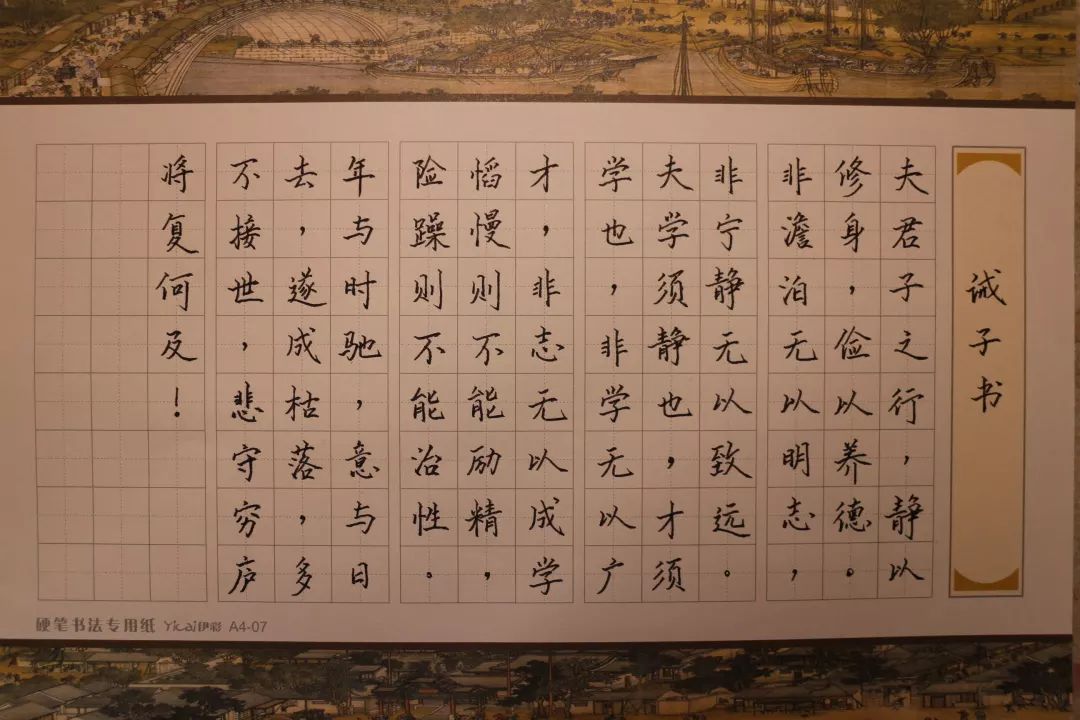 诫子书
夫君子之行，静以
修身，俭以养德。
非澹泊，无以明志，
非宁静无以致远。
夫学须静也，才须
学也，非学无以广
才，非志无以成学
慆慢则不能励精，
险躁则不能治性。
年与时驰，意与日
去，遂成枯落，多
不接世，悲守穷庐
将复何及！
硬笔书法专用纸 Yicai伊彩 A4-07